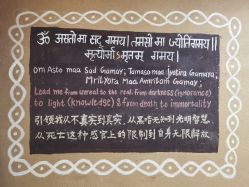 ॐ असतो मा सद् गमय। तमसो मा ज्योतिर्गमय।।
मृत्योर्मा अमृतम् गमय।
om Asto maa Sad Gamay; Tamaso maa Jyotira Gamaya,
Mrityora Maa Amritam Gamay;
Lead me from unreal to the real, from darkness (ignorance)
to light (knowledge) & from death to immortality
引领我从不真实到真实，从黑暗无知到光明智慧，
从死亡这种感官上的限制到自身无限解放